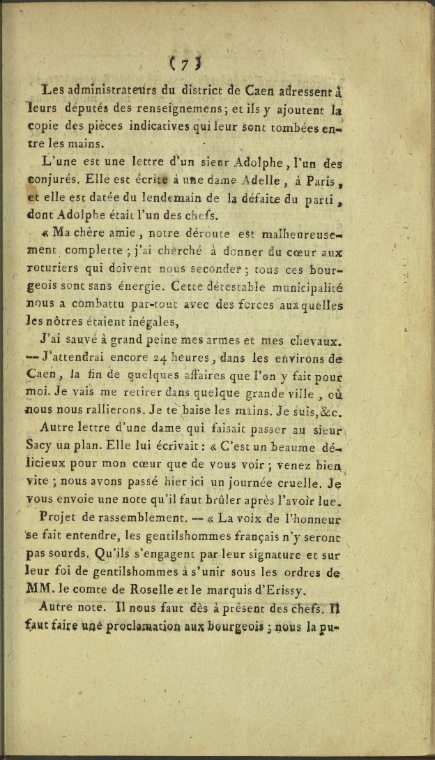 ( 7 )
Les administrateurs du district de Caen adressent à
leurs députés des renseignemens ; et ils y ajoutent la
copie des pièces indicatives qui leur sont tombées en-
tre les mains.
L'une est une lettre d'un sieur Adolphe, l'un des
conjurés. Elle est écrite à une dame Adelle, à Paris,
et elle est datée du lendemain de la défaite du parti,
dont Adolphe était l'un des chefs.
« Ma chère amie, notre déroute est malheureuse-
ment complette ; j'ai cherché à donner du cœur aux
roturiers qui doivent nous seconder ; tous ces bour-
geois sont sans énergie. Cette détestable municipalité
nous a combattu par-tout avec des forces auxquelles
les nôtres étaient inégales,
J'ai sauvé à grand peine mes armes et mes chevaux.
— J'attendrai encore 24 heures, dans les environs de
Caen, la fin de quelques affaires que l'on y fait pour
moi. Je vais me retirer dans quelque grande ville, où
nous nous rallierons. Je te baise les mains. Je suis, &c.
Autre lettre d'une dame qui faisait passer au sieur
Sacy un plan. Elle lui écrivait : « C'est un beaume dé-
licieux pour mon cœur que de vous voir ; venez bien
vite ; nous avons passé hier ici un journée cruelle. Je
vous envoie une note qu'il faut brûler après l'avoir lue.
Projet de rassemblement. — « La voix de l'honneur
se fait entendre, les gentilshommes français n'y seront
pas sourds. Qu'ils s'engagent par leur signature et sur
leur foi de gentilshommes à s'unir sous les ordres de
MM. le comte de Roselle et le marquis d'Erissy.
Autre note. Il nous faut dès à présent des chefs. Il
faut faire une proclamation aux bourgeois ; nous la pu-